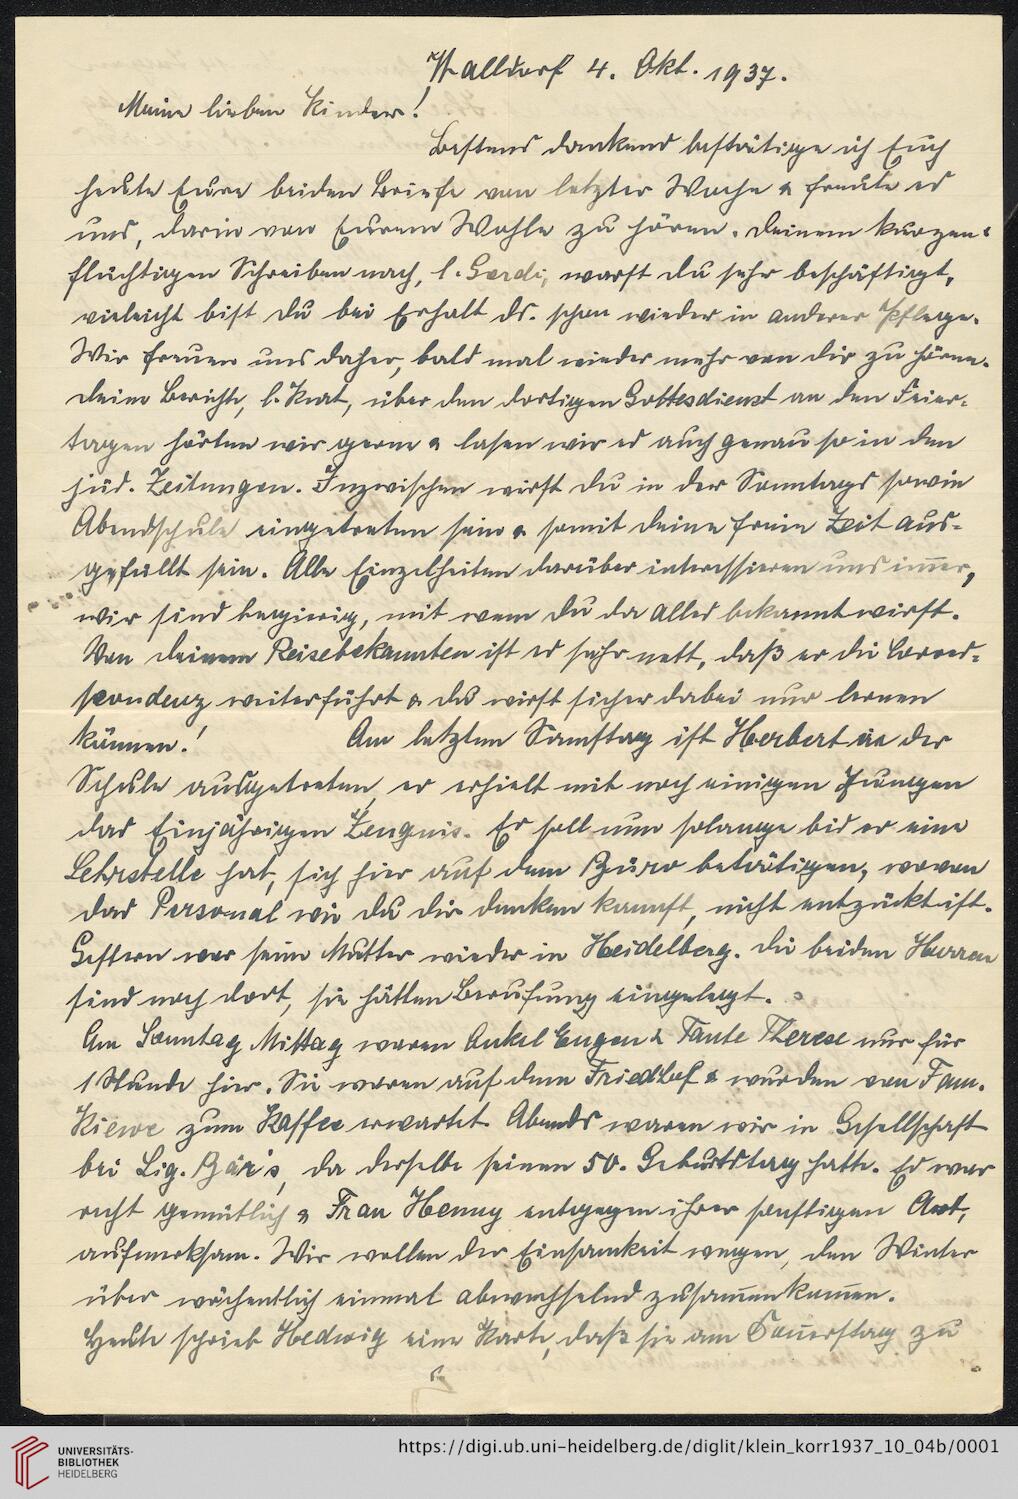 Walldorf 4. Okt. 1937.
Meine lieben Kinder!
Bestens dankend bestätige ich Euch
heute Eure beiden Briefe von letzter Woche & freute es
uns, darin von Eurem Wohle zu hören. Deinem kurzen &
flüchtigen Schreiben nach, l. Gerdi, warst du sehr beschäftigt,
vieleicht bist du bei Erhalt ds. schon wieder in anderer Pflege.
Wir freuen uns daher, bald mal wieder mehr von dir zu hören.
Deine Berichte, l. Kurt, über den dortigen Gottesdienst an den Feier-
tagen hörten wir gerne & lasen wir es auch genau so in den
jüd. Zeitungen. Inzwischen wirst du in der Sonntags sowie
Abendschule eingetreten sein & somit deine freie Zeit aus-
gefüllt sein. Alle Einzelheiten darüber interessieren uns im̅er,
wir sind begierig, mit wem du da alles bekannt wirst.
Von deinem Reisebekannten ist es sehr nett, daß er die Corres-
pondenz weiterführt & du wirst sicher dabei nur lernen
können! Am letzten Samstag ist Herbert in der
Schule ausgetreten, er erhielt mit noch einigen Jungen
das Einjährigen Zeugnis. Er soll nun solange bis er eine
Lehrstelle hat, sich hier auf dem Büro betätigen, wovon
das Personal wie du dir denken kannst, nicht entzückt ist.
Gestern war seine Mutter wieder in Heidelberg. Die beiden Herren
sind noch dort, sie hätten Berufung eingelegt.
Am Sonntag Mittag waren Onkel Eugen & Tante Therese nur für
1 Stunde hier. Sie waren auf dem Friedhof & wurden von Fam.
Kiewe zum Kaffee erwartet. Abends waren wir in Gesellschaft
bei Sig. Bär's, da derselbe seinen 50. Geburtstag hatte. Es war
recht gemütlich & Frau Henny entgegen ihrer sonstigen Art,
aufmerksam. Wir wollen der Einsamkeit wegen, den Winter
über wöchentlich einmal abwechselnd zusam̅enkom̅en.
Heute schrieb Hedwig eine Karte, daß sie am Don̅erstag zu
UNIVERSITÄTS-
BIBLIOTHEK
HEIDELBERG
https://digi.ub.uni-heidelberg.de/diglit/klein_korr1937_10_04b/0001